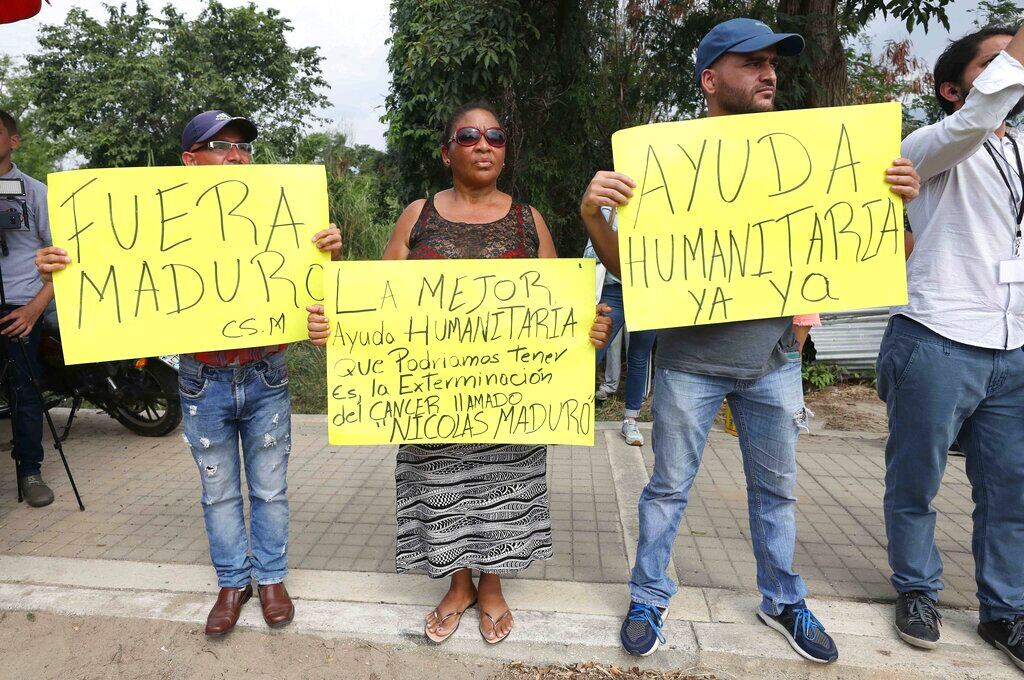 FUERA
MADURO
CS.M
LA MEJOR
Ayuda HUMANITARIA
Que Podriamos Tener
Es, la Exterminación
del CANCER llAMADO
"NICOLAS MADURO"
AYUDA
HUMANITARIA
YA Ya